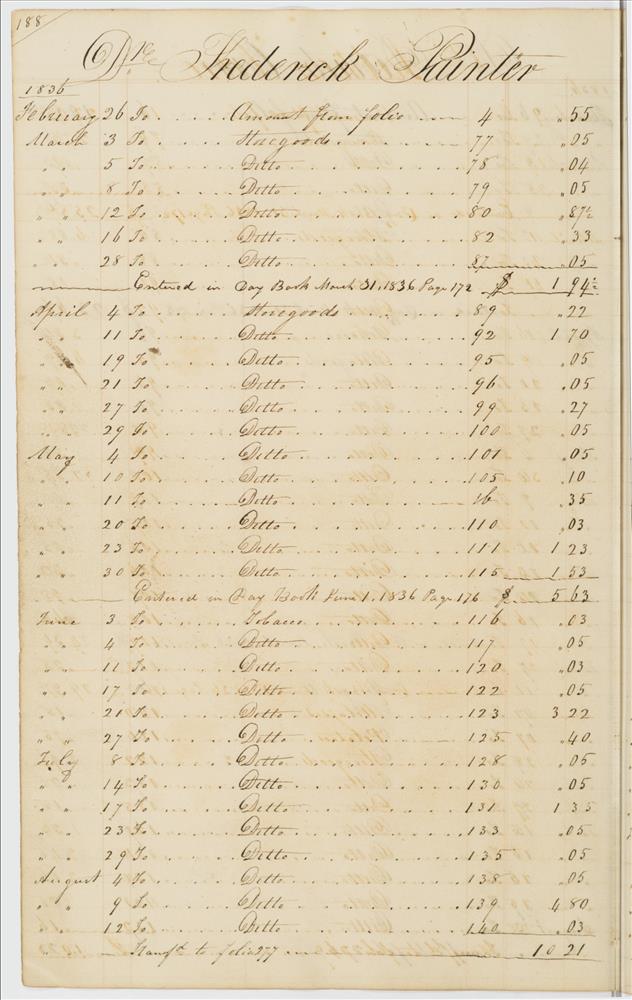 188
Dr. Frederick Painter
1836
February 26 To .... Amount from folio .... 4 .55
March 3 To .... Storegoods .... 77 .05
" " 5 To .... Ditto .... 78 .04
" " 8 To .... Ditto .... 79 .05
" " 12 To .... Ditto .... 80 .87½
" " 16 To .... Ditto .... 82 .33
" " 28 To .... Ditto .... 87 .05
Entered in Day Book March 31, 1836 Page 172 $ 1 94½
April 4 To .... Storegoods .... 89 .22
" " 11 To .... Ditto .... 92 1 70
" " 19 To .... Ditto .... 95 .05
" " 21 To .... Ditto .... 96 .05
" " 27 To .... Ditto .... 99 .27
" " 29 To .... Ditto .... 100 .05
May 4 To .... Ditto .... 101 .05
" " 10 To .... Ditto .... 105 .10
" " 11 To .... Ditto .... .35
" " 20 To .... Ditto .... 110 .03
" " 23 To .... Ditto .... 111 1 23
" " 30 To .... Ditto .... 115 1 53
Entered in Day Book June 1, 1836 Page 176 $ 5 63
June 3 To .... Tobacco .... 116 .03
" " 4 To .... Ditto .... 117 .05
" " 11 To .... Ditto .... 120 .03
" " 17 To .... Ditto .... 122 .05
" " 21 To .... Ditto .... 123 3 22
" " 27 To .... Ditto .... 125 .40
July 8 To .... Ditto .... 128 .05
" " 14 To .... Ditto .... 130 .05
" " 17 To .... Ditto .... 131 1 35
" " 23 To .... Ditto .... 133 .05
" " 29 To .... Ditto .... 135 .05
August 4 To .... Ditto .... 138 .05
" " 9 To .... Ditto .... 139 4 80
" " 12 To .... Ditto .... 140 .03
Transfd to folio 277 .... 10 21